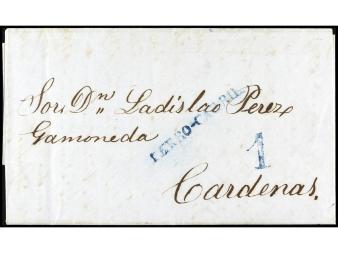 Sor. Dn. Ladislao Perez
Gamoneda
FERRO-CARRIL
1
Cardenas.